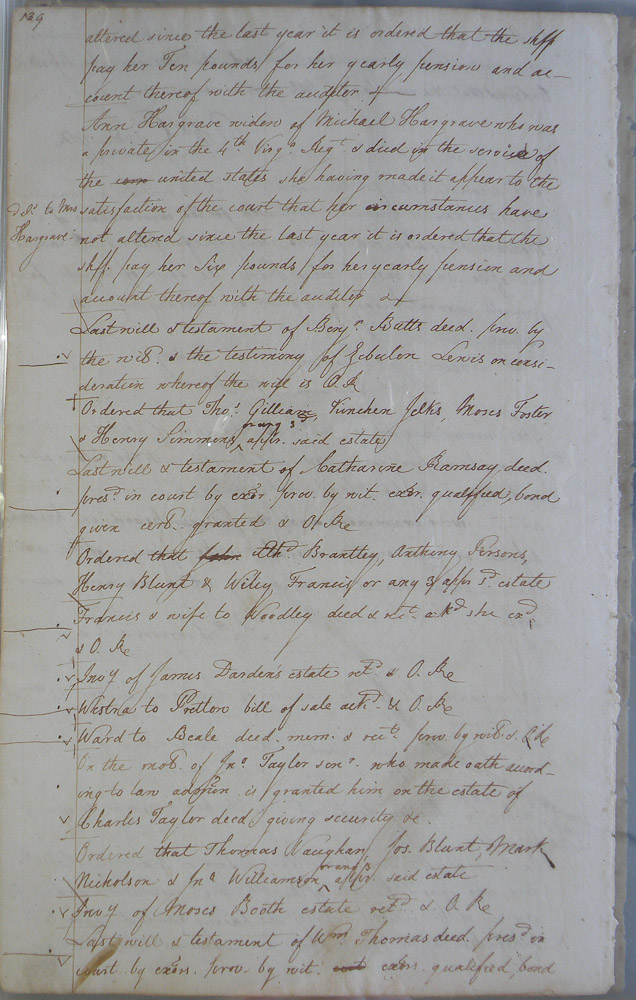 129
altered since the last year it is ordered that the shff
pay her Ten pounds for her yearly pension and ac-
count thereof with the auditor
Ann Hargrave widow of Michael Hargrave who was
a private in the 4th Virga. Regt. & died in the service of
the com united states she having made it appear to the
dd. to Mrs
Hargrave
satisfaction of the court that her circumstances have
not altered since the last year it is ordered that the
shff. pay her Six pounds for her yearly pension and
account thereof with the auditor
Last will & testament of Benjn. Butts deed. prov. by
the wits. & the testimony of Zebulon Lewis on consi-
deration whereof the will is O. R
Ordered that Thos. Gilliam, Kinchen Jelks, Moses Foster
& Henry Simmons or any 3 appr. said estate
Last will & testament of Catharine Ramsay deed.
presd. in court by exor. prov. by wit. exor. qualified, bond
given cert. granted & O. Re
Ordered that John Brantley, Anthony Persons,
Henry Blunt & Wiley Francis or any 3 appr sd. estate
Francis & wife to Woodley deed & rect. ackd she exd.
& O. Re
Invy of James Darden's estate retd. & O. Re
Westra to Pretlow bill of sale ackd. & O. Re
Ward to Beale deed. mem. & rect. prov. by wits. & O Re
On the mot. of Jno. Taylor senr. who made oath accord-
ing to law admon. is granted him on the estate of
Charles Taylor decd. giving security &c.
Ordered that Thomas Vaughan, Jos. Blunt, Mark
Nicholson & Jno. Williamson or any 3 appr. said estate
Invy of Moses Booth estate retd. & O. Re
Last will & testament of Wm. Thomas deed. presd in
court by exors. prov. by wit. exors. qualified, bond